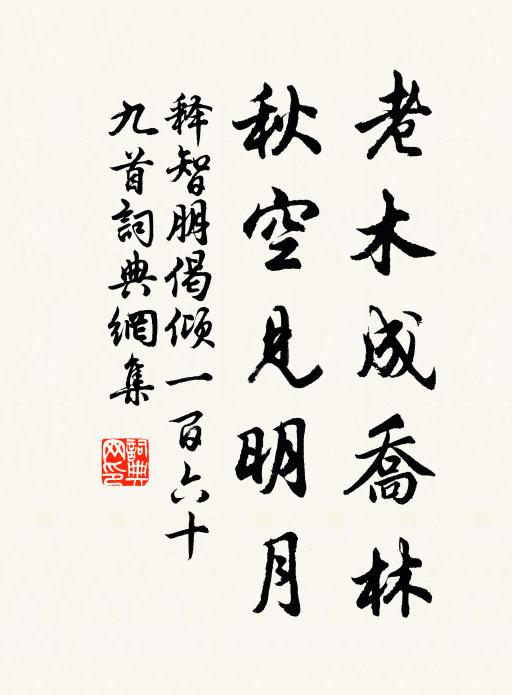 老木成喬林
秋空見明月
释智朋偈倾一百六十
九首詞典網集
詞典網印